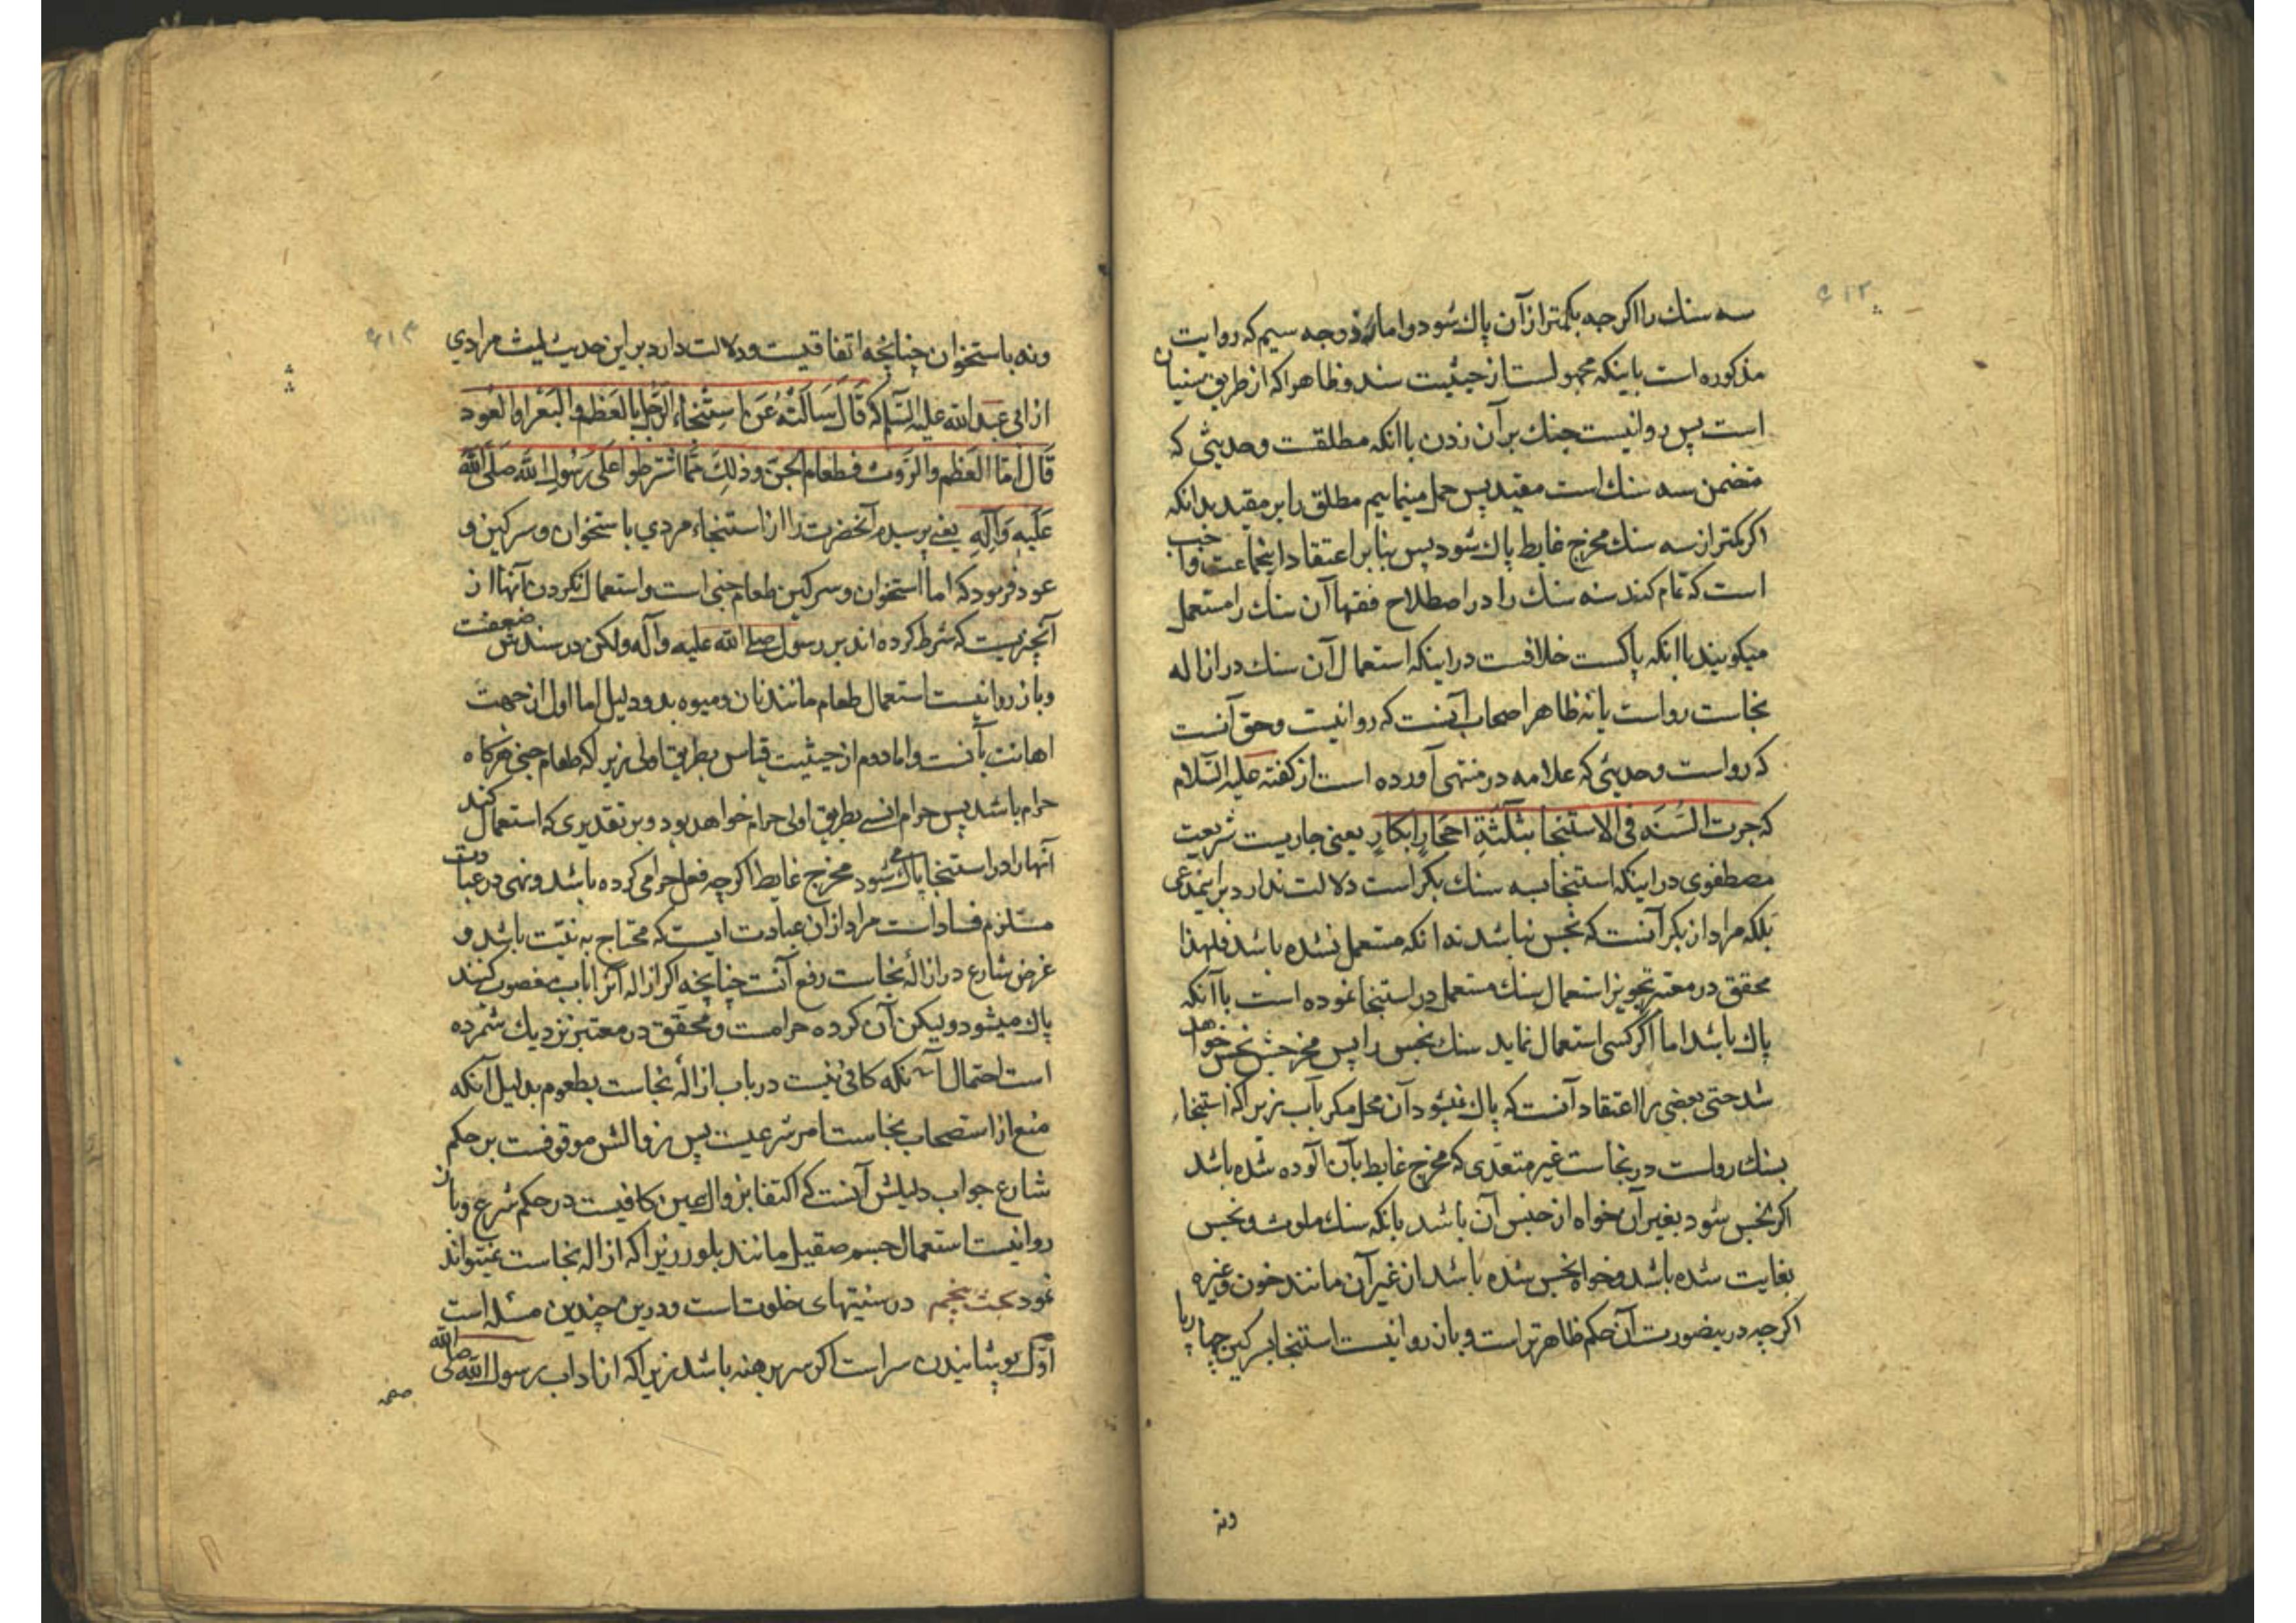 ۶۱۲
سه سنك را اكرجه بكمتر از آن پاك شود واما از وجه سیم كه روایت
مذكوره است باینكه مجهولست از حیثیت سند وظاهرا كه از طریق سنیان
است پس روا نیست چنك بر آن زدن با آنكه مطلقت وحدیثی كه
متضمن سه سنك است مقید پس حمل مینماییم مطلق را بر مقید بدانكه
اكر بكمتر از سه سنك مخرج غایط پاك شود پس بنا بر اعتقاد اینجماعت واجب
است كه تمام كند سه سنك را در اصطلاح فقها آن سنك را مستعمل
میكویند با آنكه پاكست خلافست در اینكه استعمال آن سنك در ازاله
نجاست رواست یا نه ظاهر اصحاب آنست كه روا نیست وحق آنست
كه رواست وحدیثی كه علامه در منتهی آورده است از كفته علیه السلام
كه جرت السُنَه فی الاستنجا بثلثةِ احجارٍ ابكارٍ یعنی جاریست شریعت
مصطفوی در اینكه استنجا به سه سنك بكر است دلالت ندارد بر اینمدعی
بلكه مراد از بكر آنست كه نجس نباشد نه آنكه مستعمل نشده باشد فلهذا
محقق در معتبر تجویز استعمال سنك مستعمل در استنجا نموده است با آنكه
پاك باشد اما اكر كسی استعمال نماید سنك نجس را پس مخرجش نجس خواهد
شد حتی بعضی را اعتقاد آنست كه پاك نمیشود آن محل مكر بآب زیرا كه استنجاء
بسنك رواست در نجاست غیر متعدّی كه مخرج غایط بآن آلوده شده باشد
اكر نجس شود بغیر آن خواه از جنس آن باشد بانكه سنك ملوث ونجس
بغایت شده باشد وخواه نجس شده باشد از غیر آن مانند خون وغیره
اكرچه در ینصورت آن حكم ظاهرتر است وباز روا نیست استنجا بسركین چهارپا
ونه
۶۱۳
ونه باستخوان چنانچه اتفاقیست ودلالت دارد بر این حدیث لیث مرادي
از ابی عبد الله علیه السّلم كه قَالَ سَاَلتُهُ عَن اِستِنجاءِ الرّجل بالعَظم والبَعرِ اوالعُود
قَالَ أمّا العَظم والرَّوث فطعام الجِنّ وذلِكَ ممّا اشترطوا علَی رَسُولِ الله صَلَّی اللهُ
عَلَیهِ وَآلِهِ یعنی پرسیدم آنحضرت را از استنجاء مردي باستخوان وسركین و
عود فرمود كه اما استخوان وسركین طعام جنی است واستعمال نكردن آنها از
آنچیزیست كه شرط كرده اند بر رسول صلی الله علیه وآله ولكن در سندش ضعفست
وباز روا نیست استعمال طعام مانند نان ومیوه بدو دلیل اما اول از جهت
اهانت بآنست واما دوم از حیثیت قیاس بطریق اولی زیرا كه طعام جنی هركاه
حرام باشد پس حرام انسی بطریق اولی حرام خواهد بود وبر تقدیری كه استعمال كند
آنها را در استنجا پاك میشود مخرج غایط اكرچه فعل حرامی كرده باشد ونهی در عبادت
مستلزم فساد است مراد از آن عبادت ایست كه محتاج به نیّت باشد و
غرض شارع در ازالهٔ نجاست رفع آنست چنانچه اكر ازاله آنرا باب مغصوب كنند
پاك میشود ولیكن آن كرده حرامست ومحقق در معتبر نزدیك شمرده
است احتمال آنكه كافی نیست در باب ازالهٔ نجاست بطعوم بدلیل آنكه
منع از استصحاب نجاست امر شرعیست پس زوالش موقوفست بر حكم
شارع جواب دلیلش آنست كه اكتفا بزوال عین كافیست در حكم شرع وباز
روا نیست استعمال جسم صقیل مانند بلور زیرا كه ازاله نجاست نمیتواند
نمود بحث پنجم در سنتیهای خلوتست ودرین چندین مسئله است
اوّل پوشانیدن سر است اكر سر برهنه باشد زیرا كه از اداب رسول الله صلی الله